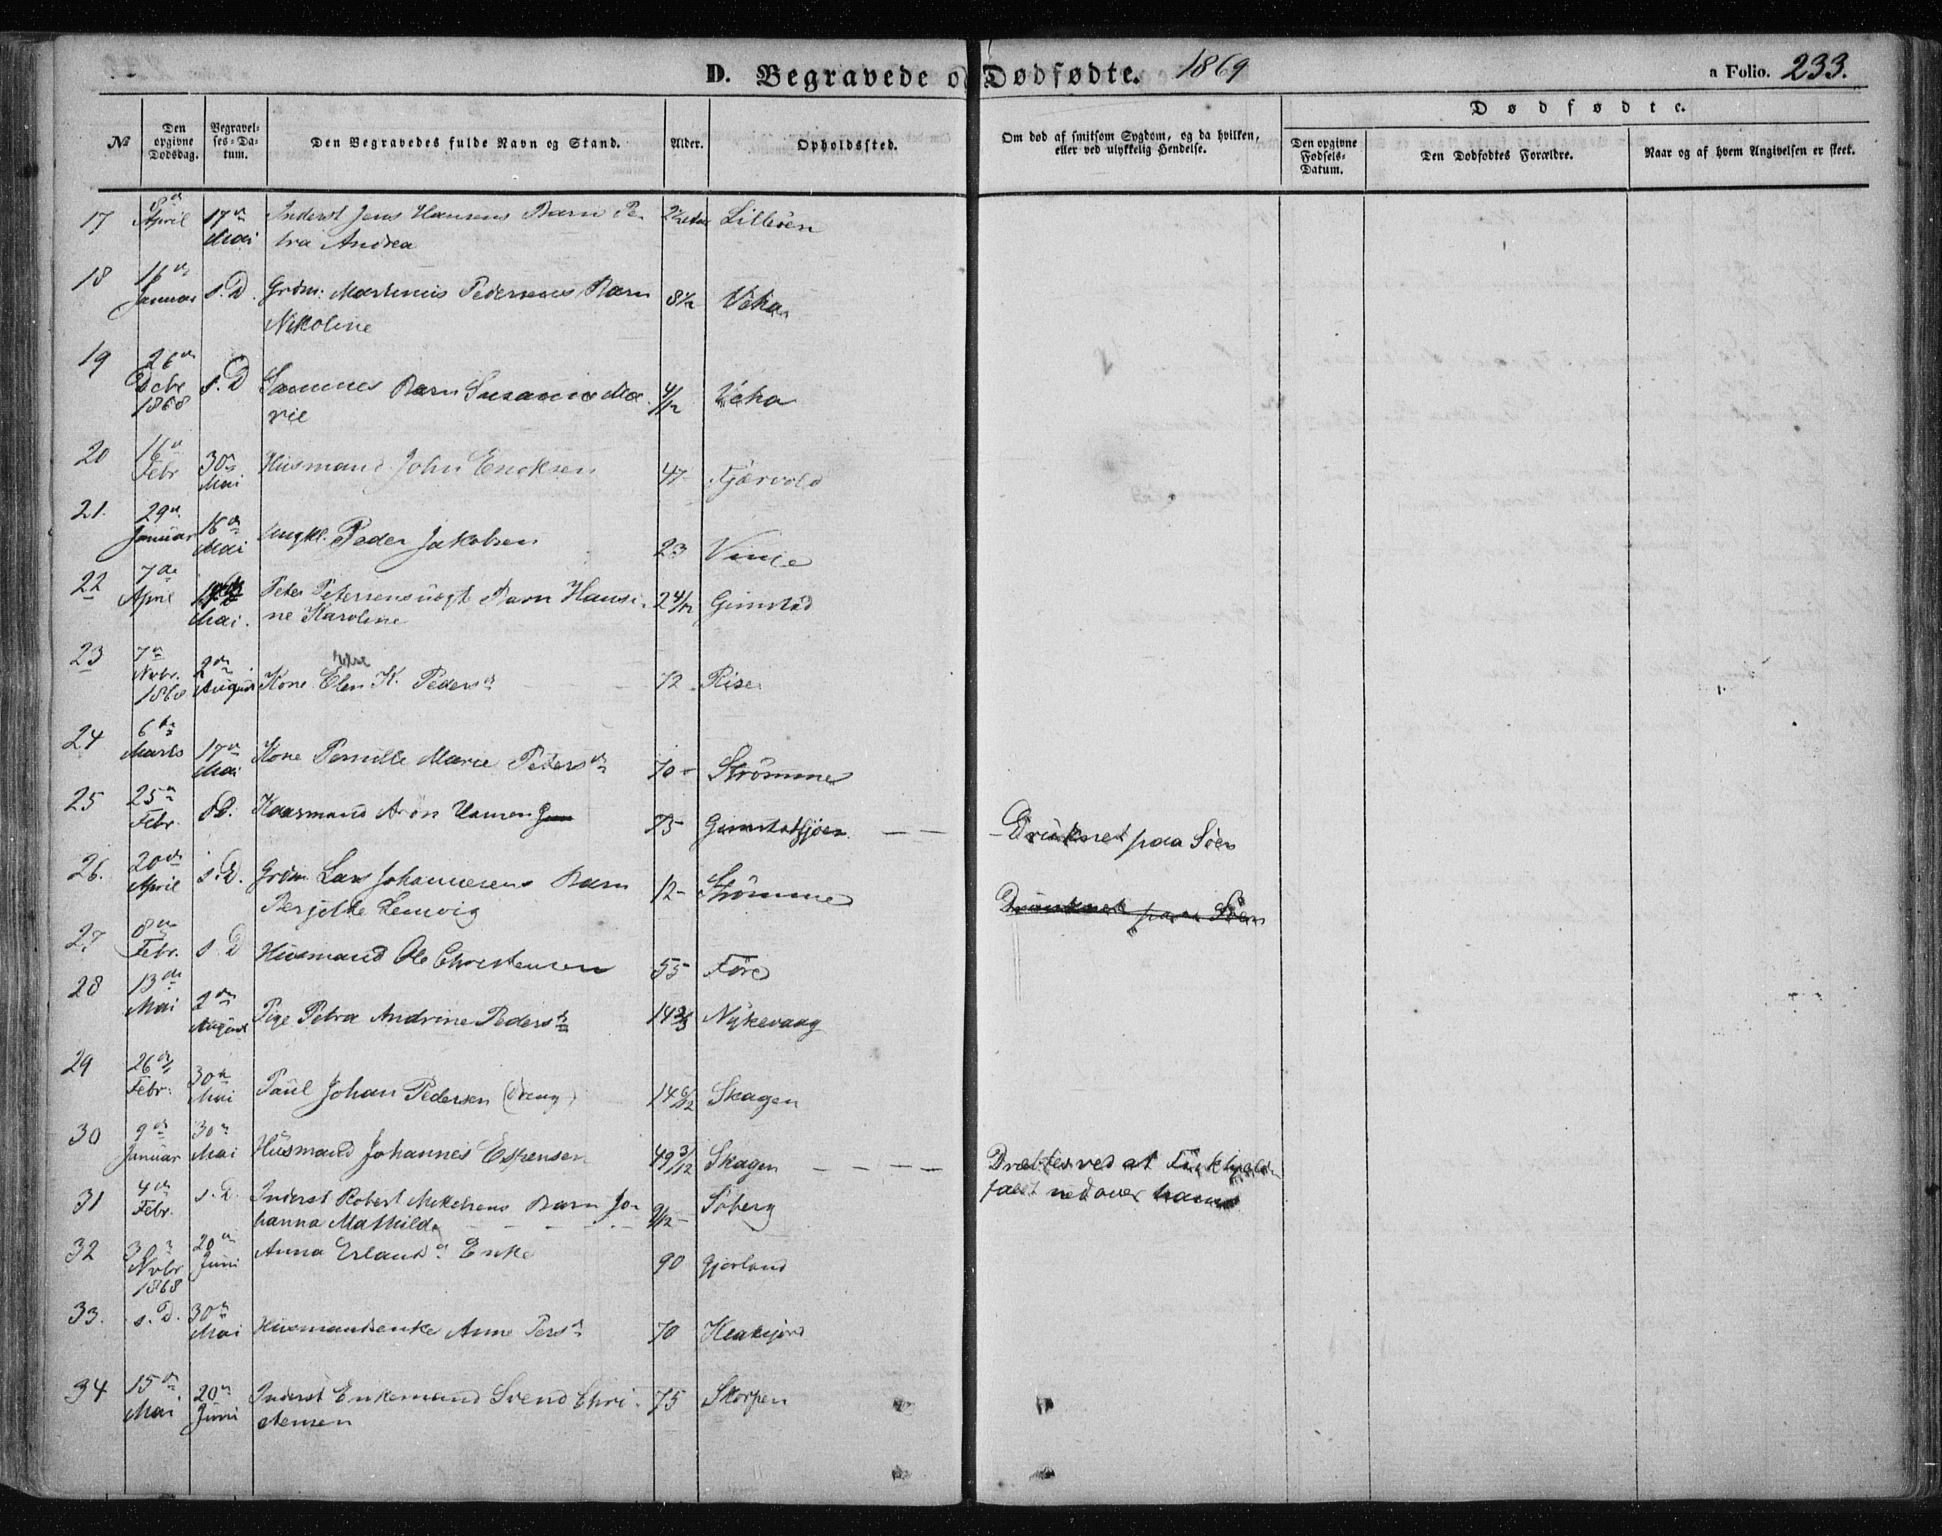 D. Begravede og Dødfødte. 1869
a Folio. 233.
№
Den opgivne Dödsdag.
Begravelses-Datum.
Den Begravedes fulde Navn og Stand.
Alder.
Opholdssted.
Om död af smitsom Sygdom, og da hvilken, eller ved ulykkelig Hendelse.
Dødfødte.
Den opgivne Födsels-Datum.
Den Dödfödtes Forældre.
Naar og af hvem Angivelsen er skeet.
17 8de April 17de Mai Inderst Jens Hansens Barn Pe-
tra Andrea Lilleöen
18 16de Januar s. D. Grdm. Martinus Pedersens Barn
Nikoline 8/12 Veha
19 26de Decbr 1868 s. D Sammes Barn Susanna Ma-
rie 4/12 Veha
20 16de Febr 30te Mai Husmand John Enoksen 47 Fjærvold
21. 29de Januar 16de Mai Ungkl. Peder Jakobsen 23 Vinje
22 7de April Mai. Peter Petersensvogt Barn Hansi-
ne Karoline 2 4/12 Gimstad
23 7de Novbr. 1868 2den August Kone Elen K. Pedersd. 72 Rise
24 6te Marts 17de Mai Kone Pernille Marie Petersdr 70 Strömme
25 25de Febr. s. D. Kaarmand Aron Hansen 75 Gimstadfjöen — — Druknet paa Söen
26. 20de April s. D. Grdm Lars Johannesens Barn
Berjitte Lenvig 12 Strömme Druknet paa Söen
27 8de Febr. s. D Husmand Ole Christensen 55 Före
28 13de Mai 2den August Pige Petra Andrine Pedersdr 14 Nykevaag
29 26de Febr. 30te Mai Paul Johan Pedersen (Dreng) 14 Skagen
30 9de Januar 30te Mai Husmand Johannes Espensen 49 3/12 Skagen — — — Dræbtes ved at
faldt nedover ham
31 4de Febr. s. D. Inderst Robert Mikkelsens Barn Jo-
hanna Mathilde 9/12 Söberg
32 30te Novbr 1868 20de Juni Anna Erlandsd. Enke 90 Gjerland
33. s. D. 30te Mai Husmandsenke Anne Persdr 70 Kleakjord
34 15de Mai 20de Juni Inderst Enkemand Svend Chri-
stensen 75 Skorpen